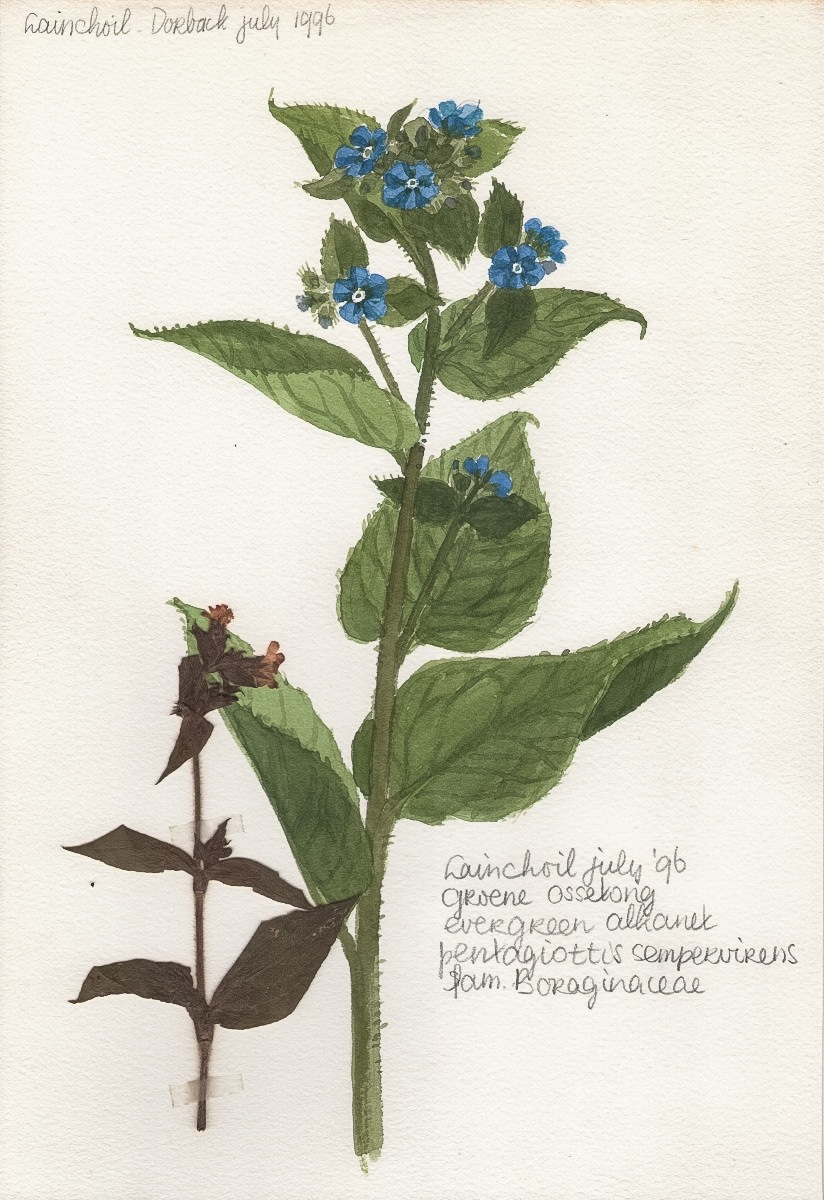 Lainchoil. Dorback july 1996
Lainchoil july '96
groene ossetong
evergreen alkanet
pentagiottis sempervirens
fam. Boraginaceae